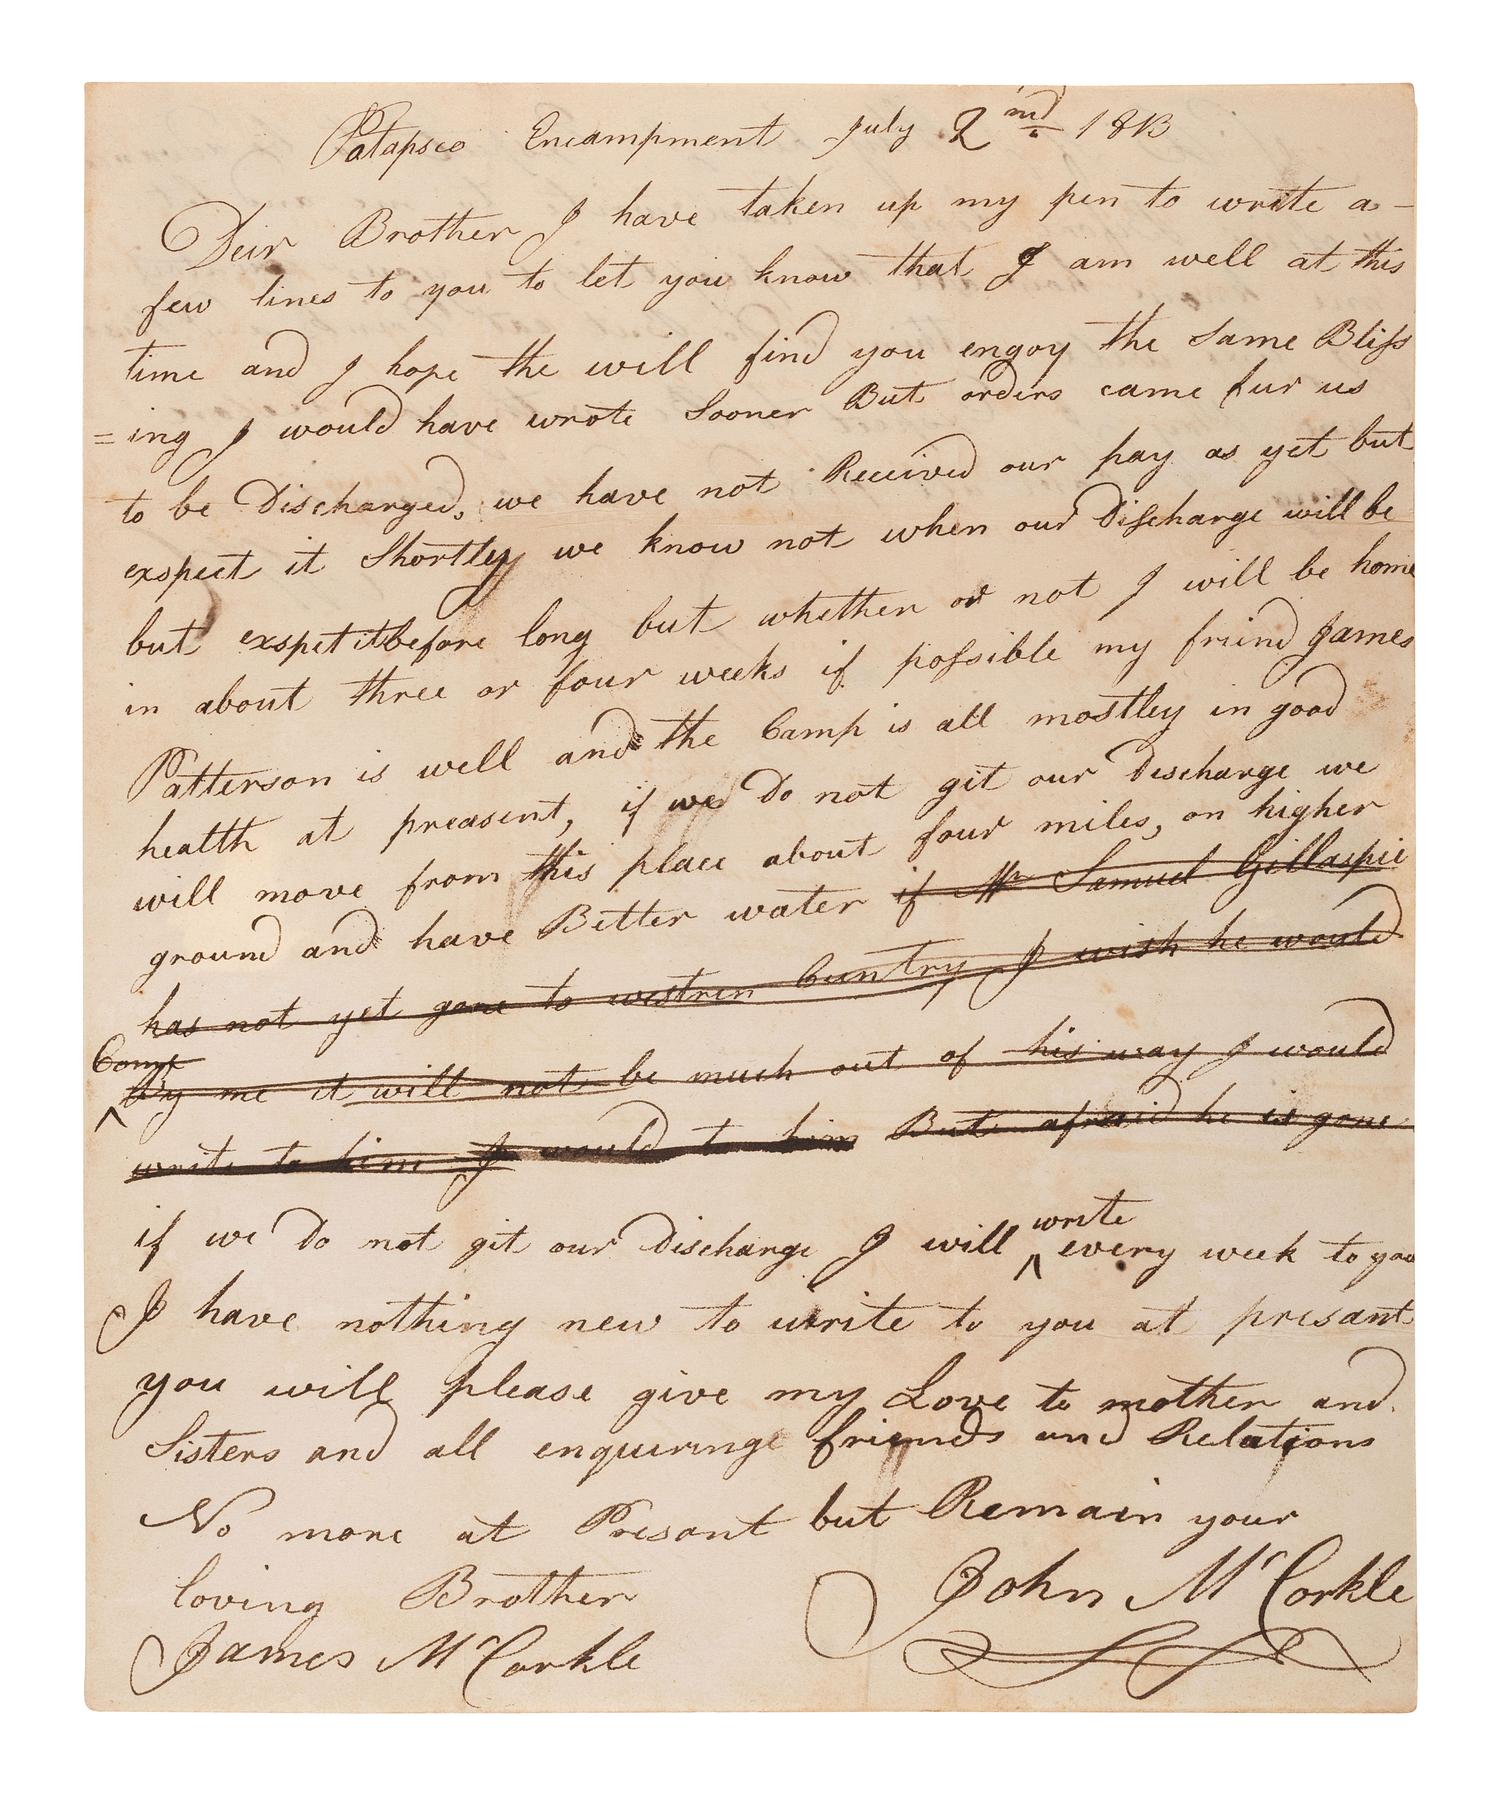 Patapsco Encampment July 2nd 1813
Deir Brother I have taken up my pen to write a-
few lines to you to let you know that I am well at this
time and I hope the will find you engoy the Same Bliss
=ing I would have wrote Sooner But orders came fur us
to be Discharged, we have not Received our pay as yet but
exspect it Shortley we know not when our Discharge will be
but exspetitbefore long but whether or not I will be home
in about three or four weeks if possible my friend James
Patterson is well and the Camp is all mostley in good
health at preasent, if we Do not git our Discharge we
will move from this place about four miles, on higher
ground and have Better water if Mr Samuel Gillaspie
has not yet gone to westren Cuntry I wish he would
Come
By me it will not be much out of his way I would
write to him I would to him But afraid he is gone
if we Do not git our Discharge I will write every week to you
I have nothing new to write to you at presant
you will please give my Love to mother and
Sisters and all enquiringe friends and Relations
No more at Presant but Remain your
loving Brother John McCorkle
James McCorkle